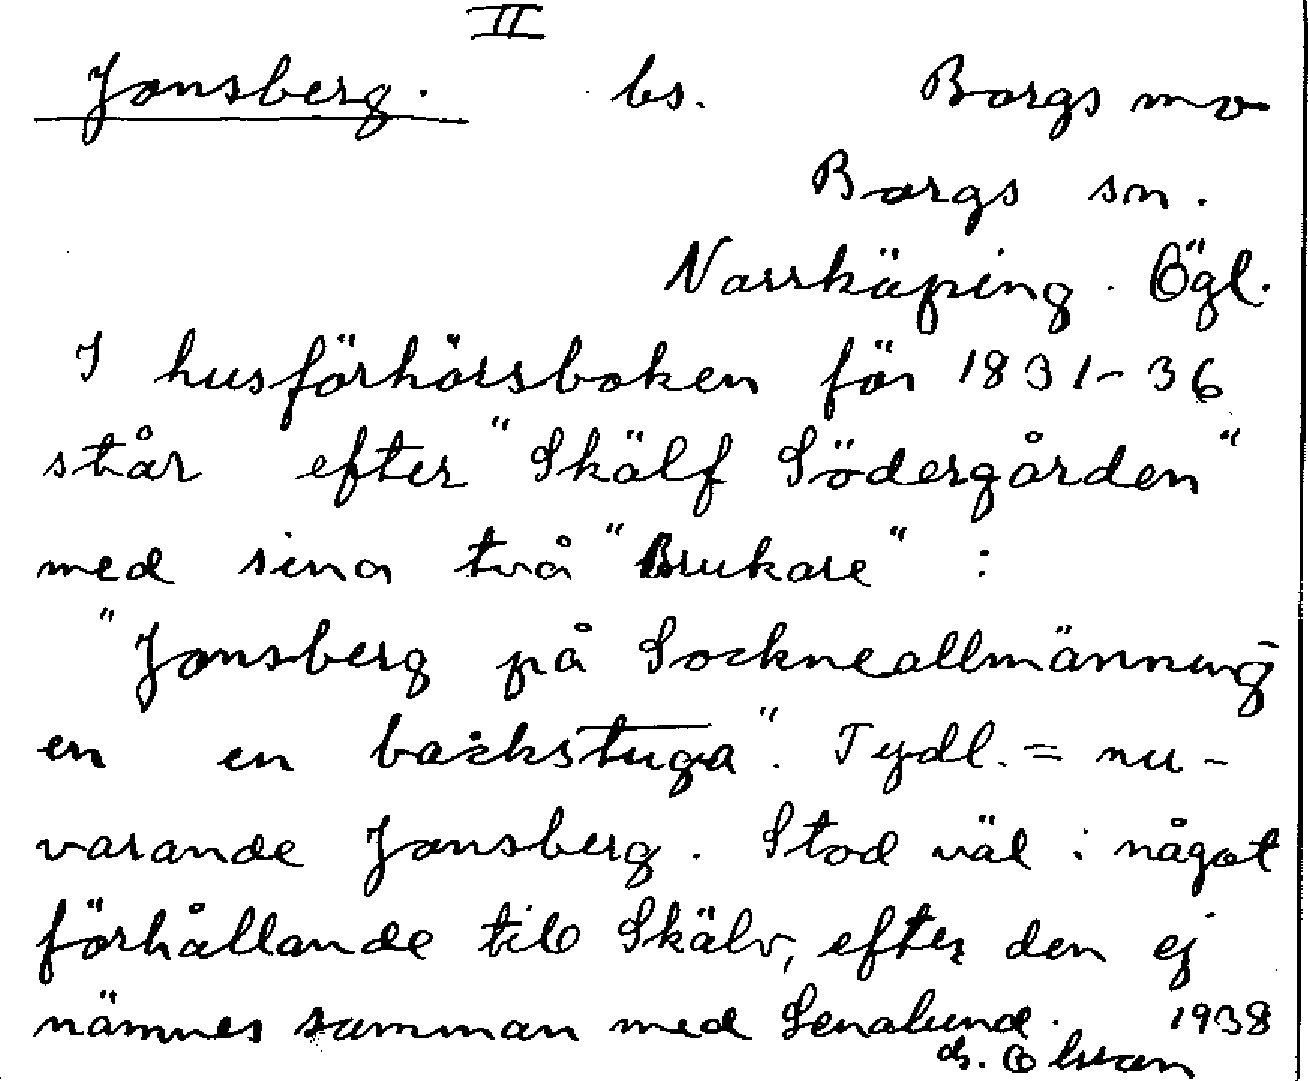 II
Jonsberg. bs. Borgs mo
Borgs sn.
Norrköping. Ögl.
I husförhörsboken för 1831-36
står efter "Skälf Södergården"
med sina två "Brukare":
"Jonsberg på Sockneallmänning
en en backstuga". Tydl. = nu-
varande Jonsberg. Stod väl i något
förhållande till Skälv, efter den ej
nämnes samman med Senalund. 1938